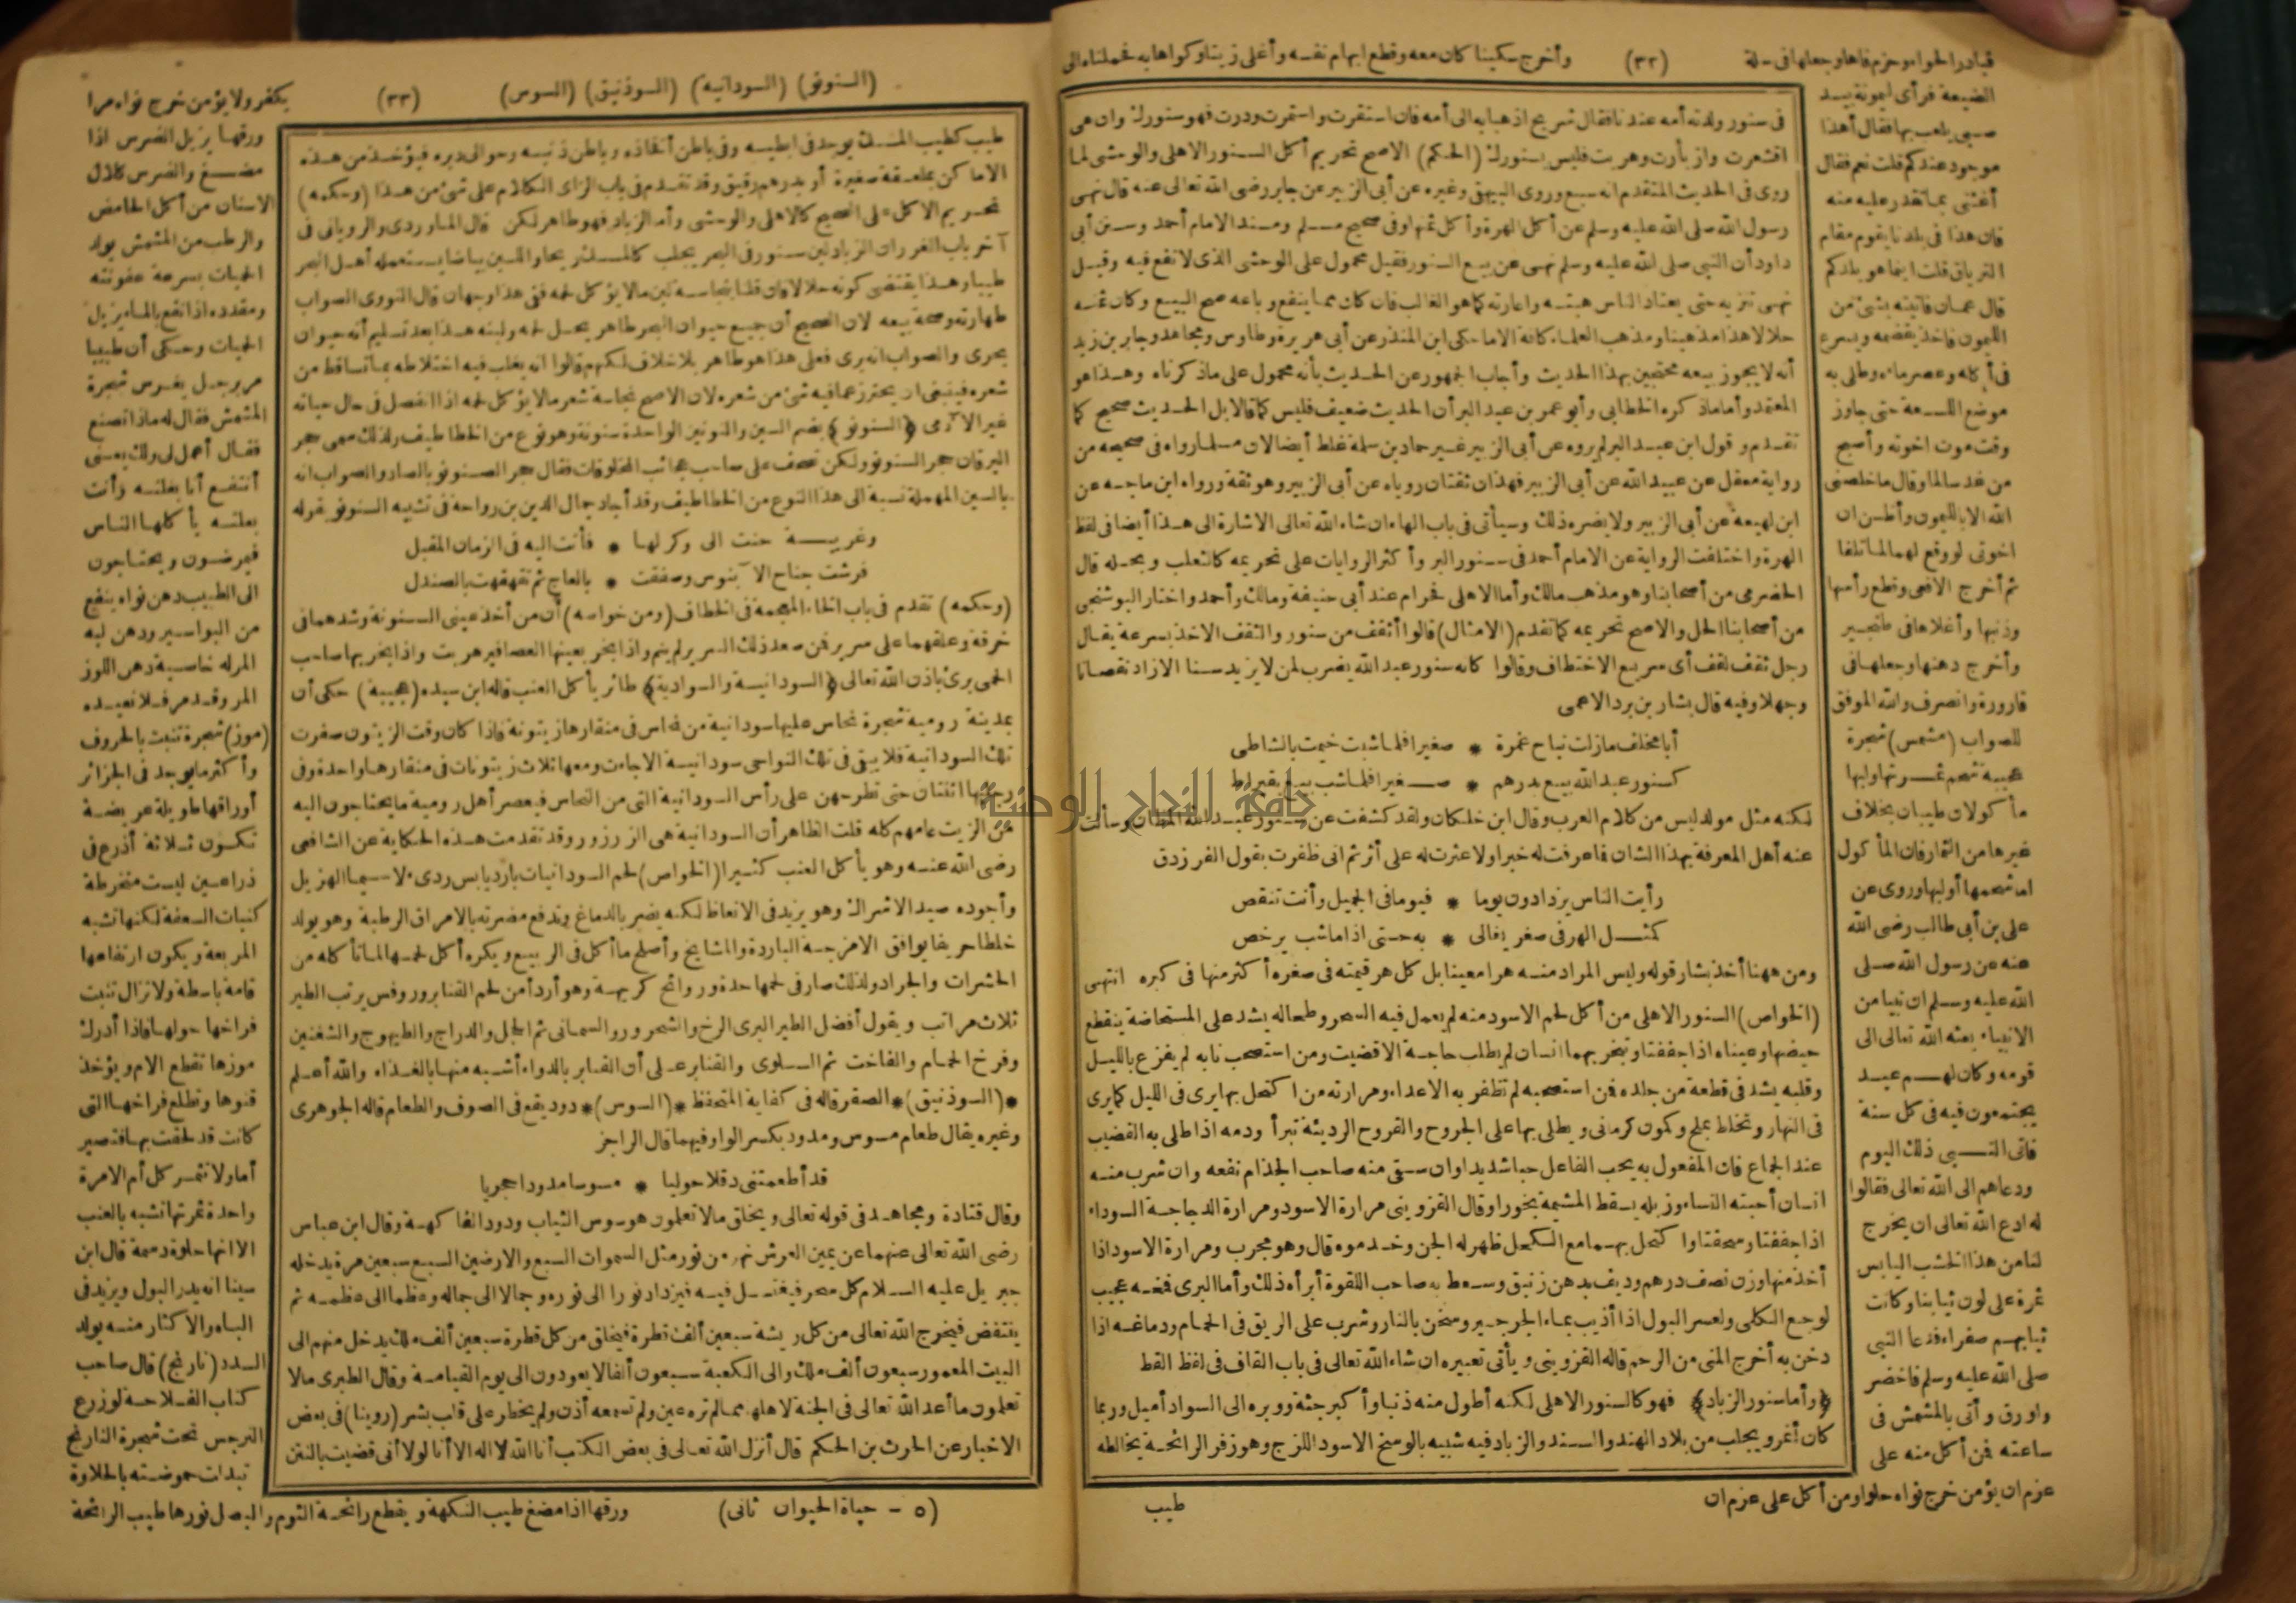 قبادر الحواء وحزم فاها وجعلها فى سلة (٣٢) وأخرج سكينا كان معه وقطع ابهام نفسه وأغلى زيتا وكواها به فحملناه الى
الضيعة فرأى ليمونة بيد
صبى يلعب بها فقال أهذا
موجود عندكم قلت نعم فقال
أغثنى بما تقدر عليه منه
فان هذا فى بلدنا يقوم مقام
الترياق قلت اينما هو بلدكم
قال عمان فاتيته بشئ من
الليمون فاخذ يقضمه ويسرع
فى أكله وعصر ماءه وطلى به
موضع اللسعة حتى جاوز
وقت موت اخوته وأصبح
من غد سالما وقال ما خلصنى
الله الا بالليمون وأظن ان
اخوتى لو وقع لهم لما تلفا
ثم أخرج الافعى وقطع رأسها
وذنبها وأغلاها فى طنجير
وأخرج دهنها وجعلها فى
قارورة وانصرف والله الموفق
للصواب (مشمس) شجرة
عجيبة شحم ثمرتها ولبها
مأكولان طيبان بخلاف
غيرها من الثمار فان المأكول
اما شحمها أو لبها وروى عن
على بن أبى طالب رضى الله
عنه عن رسول الله صلى
الله عليه وسلم ان نبيا من
الانبياء بعثه الله تعالى الى
قومه وكان لهم عيد
يجتمعون فيه فى كل سنة
فاتى النبى ذلك اليوم
ودعاهم الى الله تعالى فقالوا
له ادع الله تعالى ان يخرج
لنا من هذا الخشب اليابس
ثمرة على لون ثيابنا وكانت
ثيابهم صفراء فدعا النبى
صلى الله عليه وسلم فاخضر
واورق وأتى بالمشمش فى
ساعته فمن أكل منه على
عزم ان يؤمن خرج نواه حلوا ومن أكل على عزم ان
فى سنور ولدته أمه عندنا فقال شريح اذهبا به الى أمه فان استقرت واستمرت ودرت فهو سنورك وان هى
اقشعرت وازبأرت وهربت فليس بسنورك (الحكم) الاصح تحريم أكل السنور الاهلى والوحشى لما
روى فى الحديث المتقدم انه سبع وروى البيهقى وغيره عن أبى الزبير عن جابر رضى الله تعالى عنه قال نهى
رسول الله صلى الله عليه وسلم عن أكل الهرة وأكل ثمنها وفى صحيح مسلم ومسند الامام أحمد وسنن أبى
داود أن النبى صلى الله عليه وسلم نهى عن بيع السنور فقيل محمول على الوحشى الذى لا نفع فيه وقيل
نهى تنزيه حتى يعتاد الناس هبته واعارته كما هو الغالب فان كان مما ينفع وباعه صح البيع وكان ثمنه
حلالا هذا مذهبنا ومذهب العلماء كافة الا ما حكى ابن المنذر عن أبى هريرة وطاوس ومجاهد وجابر بن زيد
أنه لا يجوز بيعه محتجين بهذا الحديث وأجاب الجمهور عن الحديث بأنه محمول على ما ذكرناه وهذا هو
المعتمد وأما ما ذكره الخطابى وأبو عمر بن عبد البر أن الحديث ضعيف فليس كما قالا بل الحديث صحيح كما
تقدم وقول ابن عبد البر لم يروه عن أبى الزبير غير حماد بن سلمة غلط أيضا لان مسلما رواه فى صحيحه من
رواية معقل عن عبيد الله عن أبى الزبير فهذان ثقتان روياه عن أبى الزبير وهو ثقة ورواه ابن ماجه عن
ابن لهيعة عن أبى الزبير ولا يضره ذلك وسيأتى فى باب الهاء ان شاء الله تعالى الاشارة الى هذا أيضا فى لفظ
الهرة واختلفت الرواية عن الامام أحمد فى سنور البر وأكثر الروايات على تحريمه كالثعلب وبحله قال
الحضرمى من أصحابنا وهو مذهب مالك وأما الاهلى فحرام عند أبى حنيفة ومالك وأحمد واختار البوشنجى
من أصحابنا الحل والاصح تحريمه كما تقدم (الامثال) قالوا أثقف من سنور والثقف الاخذ بسرعة يقال
رجل ثقف لقف أى سريع الاختطاف وقالوا كانه سنور عبد الله يضرب لمن لا يزيد سنا الا زاد نقصانا
وجهلا وفيه قال بشار بن برد الاعمى
أبا مخلف ما زلت نباح غمرة * صغيرا فلما شبت خيمت بالشاطى
كسنور عبد الله بيع بدرهم * صغيرا فلما شب بيع بقيراط
لكنه مثل مولد ليس من كلام العرب وقال ابن خلكان ولقد كشفت عن سنور عبد الله المظان وسألت
عنه أهل المعرفة بهذا الشان فما عرفت له خبرا ولا عثرت له على أثر ثم انى ظفرت بقول الفرزدق
رأيت الناس يزدادون يوما * فيوما فى الجميل وأنت تنقص
كمثل الهر فى صغر يغالى * به حتى اذا ما شب يرخص
ومن ههنا أخذ بشار قوله وليس المراد منه هرا معينا بل كل هر قيمته فى صغره أكثر منها فى كبره انتهى
(الخواص) السنور الاهلى من أكل لحم الاسود منه لم يعمل فيه السحر وطحاله يشد على المستحاضة ينقطع
حيضها وعيناه اذا جففتا وتبخر بهما انسان لم يطلب حاجة الا قضيت ومن استصحب نابه لم يفزع بالليل
وقلبه يشد فى قطعة من جلده فمن استصحبه لم تظفر به الاعداء ومرارته من اكتحل بها يرى فى الليل كما يرى
فى النهار وتخلط بملح وكمون كرمانى ويطلى بها على الجروح والقروح الرديئة تبرأ ودمه اذا طلى به القضيب
عند الجماع فان المفعول به يحب الفاعل حبا شديدا وان سقى منه صاحب الجذام نفعه وان شرب منه
انسان أحبته النساء وزبله يسقط المشيمة بخورا وقال القزوينى مرارة الاسود ومرارة الدجاجة السوداء
اذا جففتا وسحقتا واكتحل بهما مع الكحل ظهر له الجن وخدموه قال وهو مجرب ومرارة الاسود اذا
أخذ منها وزن نصف درهم وديف بدهن زنبق وسعط به صاحب اللقوة أبرأه ذلك وأما البرى فمخه عجيب
لوجع الكلى ولعسر البول اذا أذيب بماء الجرجير وسخن بالنار وشرب على الريق فى الحمام ودماغه اذا
دخن به أخرج المنى من الرحم قاله القزوينى ويأتى تعبيره ان شاء الله تعالى فى باب القاف فى لفظ القط
﴿وأما سنور الزباد﴾ فهو كالسنور الاهلى لكنه أطول منه ذنبا وأكبر جثة ووبره الى السواد أميل وربما
كان أغر ويجلب من بلاد الهند والسند والزباد فيه شبيه بالوسخ الاسود اللزج وهو زفر الرائحة يخالطه
طيب
(السنونو) (السودانيه) (السوذنيق) (السوس) (٣٣) يكفر ولا يؤمن خرج نواه مرا
طيب كطيب المسك يوجد فى ابطيه وفى باطن أفخاذه وباطن ذنبه وحوالى دبره فيؤخذ من هذه
الاماكن بملعقة صغيرة أو بدرهم رقيق وقد تقدم فى باب الزاى الكلام على شئ من هذا (وحكمه)
تحريم الاكل على الصحيح كالاهلى والوحشى وأما الزباد فهو طاهر لكن قال الماوردى والرويانى فى
آخر باب الغرر ان الزباد لبن سنور فى البحر يجلب كالمسك ريحا واللبن بياضا يستعمله أهل البحر
طيبا وهذا يقتضى كونه حلالا فان قلنا بنجاسة لبن ما لا يؤكل لحمه ففى هذا وجهان قال النووى الصواب
طهارته وصحة بيعه لان الصحيح أن جميع حيوان البحر طاهر يحل لحمه ولبنه هذا بعد تسليم أنه حيوان
بحرى والصواب انه برى فعلى هذا هو طاهر بلا خلاف لكنهم قالوا انه يغلب فيه اختلاطه بما تساقط من
شعره فينبغى ان يحترز عما فيه شئ من شعره لان الاصح نجاسة شعر ما لا يؤكل لحمه اذا انفصل فى حال حياته
غير الآدمى ﴿السنونو﴾ بضم السين والنونين الواحدة سنونة وهو نوع من الخطاطيف ولذلك سمى حجر
اليرقان حجر السنونو ولكن تصحف على صاحب عجائب المخلوقات فقال حجر الصنونو بالصاد والصواب انه
بالسين المهملة نسبة الى هذا النوع من الخطاطيف وقد أجاد جمال الدين بن رواحة فى تشبيه السنونو بقوله
وغريبة حنت الى وكر لها * فأتت اليه فى الزمان المقبل
فرشت جناح الآبنوس وصفقت * بالعاج ثم تقهقهت بالصندل
(وحكمه) تقدم فى باب الخاء المعجمة فى الخطاف (ومن خواصه) أن من أخذ عينى السنونة وشدهما فى
خرقة وعلقهما على سرير فمن صعد ذلك السرير لم ينم واذا بخر بعينها العصافير هربت واذا بخر بها صاحب
الحمى برئ باذن الله تعالى ﴿السودانية والسوادية﴾ طائر يأكل العنب قاله ابن سيده (عجيبة) حكى أن
بمدينة رومية شجرة نحاس عليها سودانية من نحاس فى منقارها زيتونة فاذا كان وقت الزيتون صفرت
تلك السودانية فلا يبقى فى تلك النواحى سودانية الا جاءت ومعها ثلاث زيتونات فى منقارها واحدة وفى
رجليها اثنتان حتى تطرحهن على رأس السودانية التى من النحاس فيعصر أهل رومية ما يحتاجون اليه
من الزيت عامهم كله قلت الظاهر أن السودانية هى الزرزور وقد تقدمت هذه الحكاية عن الشافعى
رضى الله عنه وهو يأكل العنب كثيرا (الخواص) لحم السودانيات بارد يابس ردىء لا سيما الهزيل
وأجوده صيد الاشراك وهو يزيد فى الانعاظ لكنه يضر بالدماغ وتدفع مضرته بالامراق الرطبة وهو يولد
خلطا حريفا يوافق الامزجة الباردة والمشايخ وأصلح ما أكل فى الربيع ويكره أكل لحمها لما تأكله من
الحشرات والجراد ولذلك صار فى لحمها حدة وروائح كريهة وهو أردأ من لحم القنابر وروفس يرتب الطير
ثلاث مراتب ويقول أفضل الطير البرى الرخ والشحرور والسمانى ثم الحجل والدراج والطيهوج والشفنين
وفرخ الحمام والفاخت ثم السلوى والقنابر على أن القنابر بالدواء أشبه منها بالغذاء والله أعلم
*(السوذنيق)* الصقر قاله فى كفاية المتحفظ *(السوس)* دود يقع فى الصوف والطعام قاله الجوهرى
وغيره يقال طعام مسوس ومدود بكسر الواو فيهما قال الراجز
قد أطعمتنى دقلا حوليا * مسوسا مدودا حجريا
وقال قتادة ومجاهد فى قوله تعالى ويخلق ما لا تعلمون هو سوس الثياب ودود الفاكهة وقال ابن عباس
رضى الله تعالى عنهما عن يمين العرش نهر من نور مثل السموات السبع والارضين السبع سبعين مرة يدخله
جبريل عليه السلام كل سحر فيغتسل فيه فيزداد نورا الى نوره وجمالا الى جماله وعظما الى عظمه ثم
ينتفض فيخرج الله تعالى من كل ريشة سبعين ألف قطرة فيخلق من كل قطرة سبعين ألف ملك يدخل منهم الى
البيت المعمور سبعون ألف ملك والى الكعبة سبعون ألفا لا يعودون الى يوم القيامة وقال الطبرى ما لا
تعلمون ما أعد الله تعالى فى الجنة لاهلها مما لم تره عين ولم تسمعه أذن ولم يخطر على قلب بشر (روينا) فى بعض
الاخبار عن الحرث بن الحكم قال أنزل الله تعالى فى بعض الكتب أنا الله لا اله الا أنا لولا أنى قضيت بالنتن
ورقها يزيل الضرس اذا
مضغ والضرس كلال
الاسنان من أكل الحامض
والرطب من المشمش يولد
الحميات بسرعة عفونته
ومقدده اذا نقع بالماء يزيل
الحميات وحكى أن طبيبا
مر برجل يغرس شجرة
المشمش فقال له ماذا تصنع
فقال أعمل لى ولك يعنى
أنتفع أنا بغلته وأنت
بعلته يأكلها الناس
فيمرضون ويحتاجون
الى الطبيب دهن نواه ينفع
من البواسير ودهن لبه
المر له خاصية دهن اللوز
المر وقد مر فلا نعيده
(موز) شجرة تنبت بالحروف
وأكثر ما يوجد فى الجزائر
أوراقها طويلة عريضة
تكون ثلاثة أذرع فى
ذراعين ليست منخرطة
كنبات السعفة لكنها تشبه
المربعة ويكون ارتفاعها
قامة باسطة ولا تزال تنبت
فراخها حولها فاذا أدرك
موزها تقطع الام ويؤخذ
قنوها وتطلع فراخها التى
كانت قد لحقت بها فتصير
أما ولا تثمر كل أم الا مرة
واحدة ثمرتها تشبه بالعنب
الا انها حلوة دسمة قال ابن
سينا انه يدر البول ويزيد فى
الباه والاكثار منه يولد
السدد (نارنج) قال صاحب
كتاب الفلاحة لو زرع
النرجس تحت شجرة النارنج
تبدلت حموضته بالحلاوة
ورقها اذا مضغ طيب النكهة ويقطع رائحة الثوم والبصل نورها طيب الرائحة
(٥ - حياة الحيوان ثانى)
جامعة النجاح الوطنية